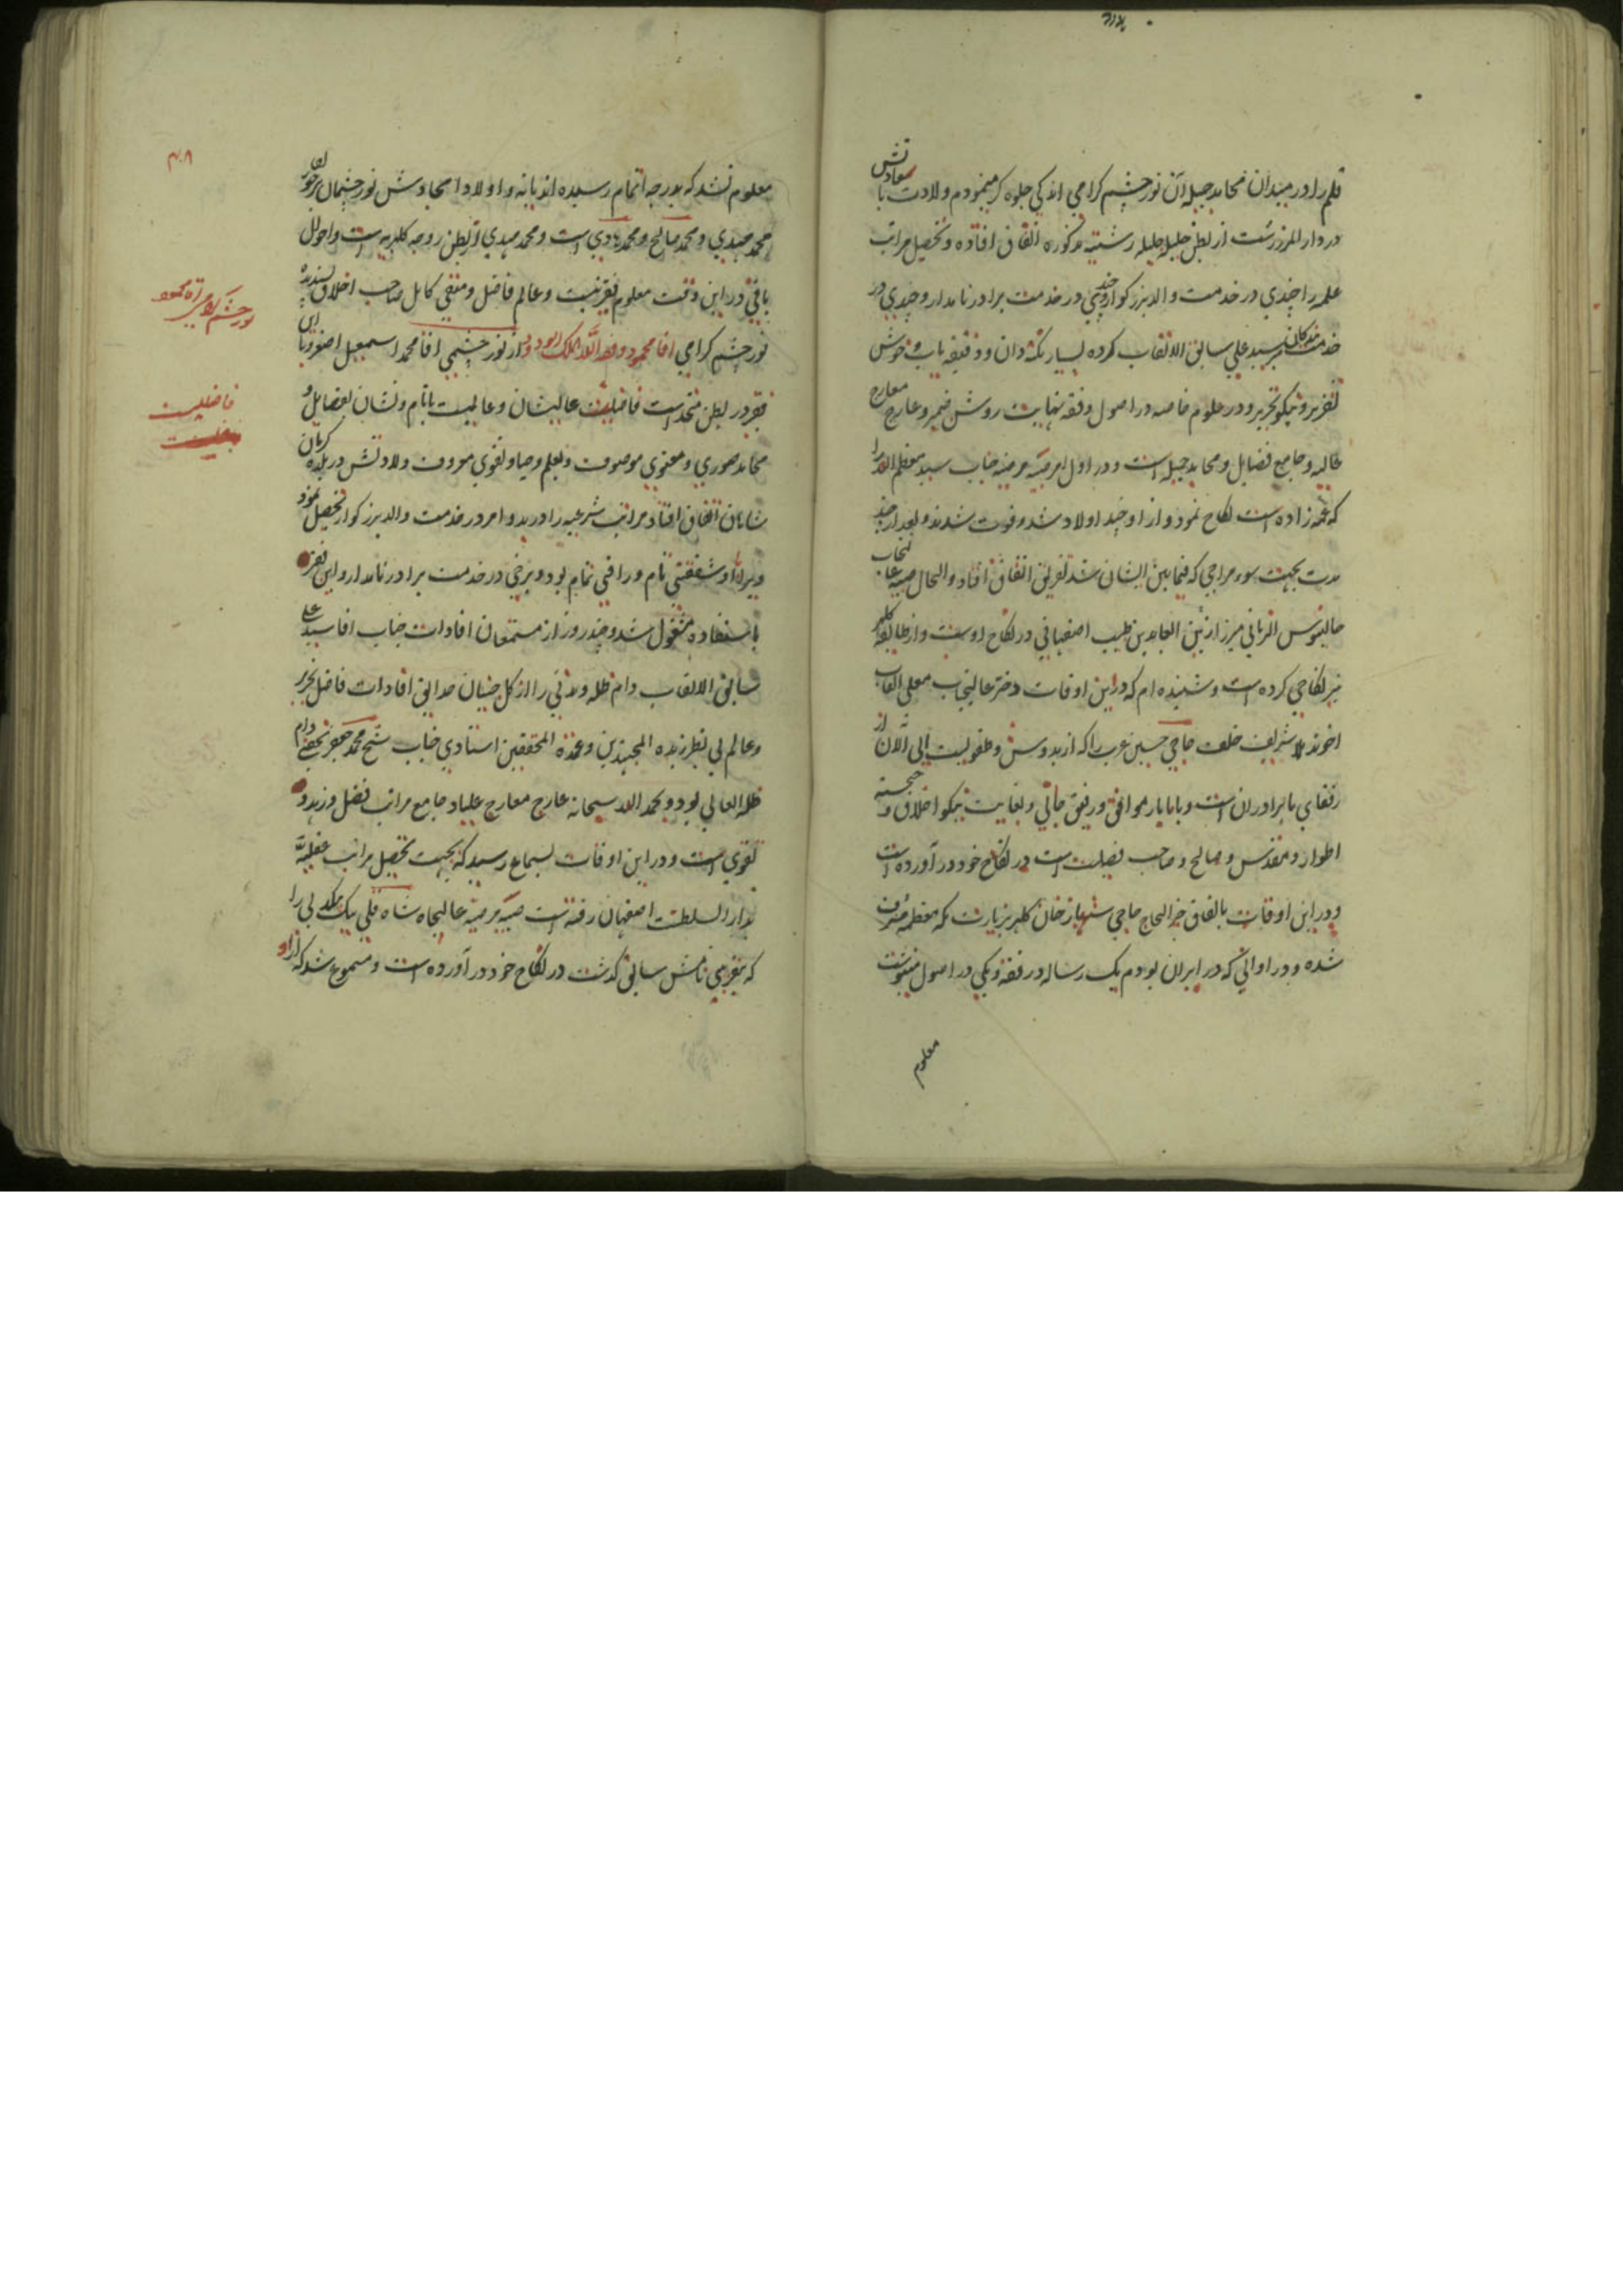 قلم را در میدان محامد جمیله آن نور چشم کرامی اندکی جلوه کر مینمودم ولادت با سعادتش
در دار المرز رشت از بطن جلیله جلیله رشتیه مذکوره اتفاق افتاده و تحصیل مراتب
علمیه را چندی در خدمت والد بزرکوار و چندی در خدمت برادر نامدار و چندی در
خدمت میر سید علی سابق الالقاب کرده بسیار نکته دان و دقیقه یاب و خوش
تقریر و نیکو تحریر و در علوم خاصه در اصول و فقه نهایت روشن ضمیر و عارج معارج
عالیه و جامع فضایل و محامد جمیله است و در اول امر صبیه مرضیه جناب سید معظم الیه را
که عمه زاده است نکاح نمود و از او چند اولاد شد و فوت شدند و بعد از چند
مدت بجهت سوء مزاجی که فیما بین ایشان شد تفریق اتفاق افتاد و الحال صبیه عالیجاب
جالینوس الزمانی میرزا زین العابدین طبیب اصفهانی در نکاح اوست و از طایفه کلهر
نیز نکاحی کرده است و شنیده ام که در این اوقات دختر عالیجناب معلی القاب
اخوند ملا شریف خلف حاجی حسین عرب را که از بدو سن و طفولیت الی الان از
رفقای ما برادران است و با ما یار موافق و رفیق جانی و بغایت نیکو اخلاق و خجسته
اطوار و مقدس و صالح و صاحب فضیلت است در نکاح خود در آورده است
و در این اوقات باتفاق خیر الحاج حاجی شهباز خان کلهر بزیارت مکه معظمه مشرف
شده و در اوانی که در ایران بودم یک رساله در فقه و یکی در اصول مینوشت
معلوم
۴۰۸
معلوم نشد که بدرجه اتمام رسیده اند یا نه و اولاد امجادش نور چشمان برخوردار
محمد مهدی و محمد صالح و محمد هادی است و محمد مهدی از بطن زوجه کلهریه است و احوال
باقی در این وقت معلوم فقیر نیست و عالم فاضل و متقی کامل صاحب اخلاق پسندیده
نور چشم کرامی اقا محمود وفقه الله الملک الودود از نور چشمی اقا محمد اسمعیل اصغر و با این
فقیر در بطن متحد است فاضلیست عالیشان و عالمیست با نام و نشان بفضایل و
محامد صوری و معنوی موصوف و بعلم و حیا و تقوی معروف ولادتش در بلده کرمان
شاهان اتفاق افتاد مراتب شرعیه را در بدو امر در خدمت والد بزرکوار تحصیل نمود
ویرا با او شفقتی تام و رافتی تمام بود و برخی در خدمت برادر نامدار و این فقیر
باستفاده مشغول شد و چند روز از مستمعان افادات جناب اقا سید علی
سابق الالقاب دام ظله و مدتی را از کل چینان حدایق افادات فاضل نحریر
و عالم بی نظیر زبده المجتهدین و عمدة المحققین استادی جناب شیخ محمد جعفر نجفی دام
ظله العالی بود و بحمد الله سبحانه عارج معارج علیا و جامع مراتب فضل و زهد و
تقوی است و در این اوقات بسماع رسید که بجهت تحصیل مراتب عقلیه
بدار السلطنت اصفهان رفته است صبیه مرضیه عالیجاه شاه قلی بیک را
که بتقریبی نامش سابق کذشت در نکاح خود در آورده است و مسموع شد که از او
نور چشم کرامی اقا محمود
فاضلیست